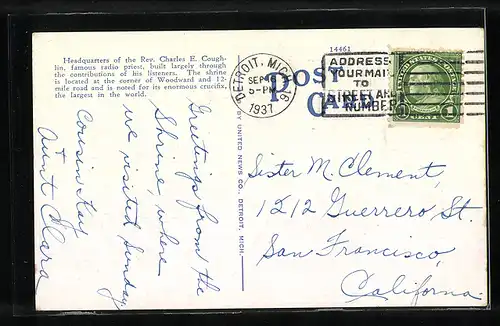 Headquarters of the Rev. Charles E. Cough-
lin, famous radio priest, built largely through
the contributions of his listeners. The shrine
is located at the corner of Woodward and 12-
mile road and is noted for its enormous crucifix,
the largest in the world.
14461
POST
CARD
DETROIT, MICH. 16
SEP
5-PM
1937
ADDRESS
YOUR MAIL
TO
STREET AND
NUMBER
1
1
BY UNITED NEWS CO., DETROIT, MICH.
Greetings from the
Shrine, where
we visited Sunday
Cousin Kay
+
Aunt Clara
Sister M. Clement,
1212 Guerrero St.
San Francisco,
California.